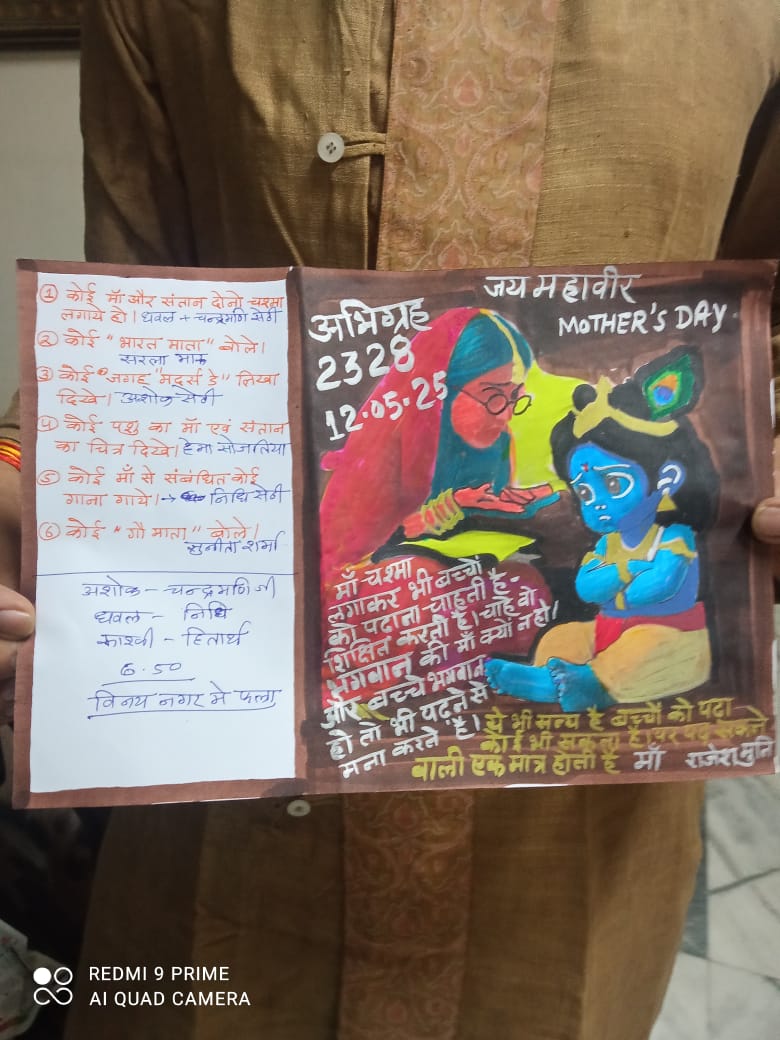 ① कोई माँ और संतान दोनो चश्मा
लगाये हो। धवल + चन्द्रमणि सेठी
② कोई "भारत माता" बोले।
सरला भाऊ
③ कोई जगह "मदर्स डे" लिखा
दिखे। अशोक सेठी
④ कोई पशु का माँ एवं संतान
का चित्र दिखे। हेमा सोजतिया
⑤ कोई माँ से संबंधित कोई
गाना गाये। → निधि सेठी
⑥ कोई "गौ माता" बोले।
सुनीता शर्मा
अशोक - चन्द्रमणि जी
धवल - निधि
काश्वी - हितार्थ
6.50
विनय नगर मे फला
जय महावीर
MOTHER'S DAY
अभिग्रह
2328
12.05.25
माँ चश्मा
लगाकर भी बच्चों
को पढाना चाहती है-
शिक्षित करती है। चाहे वो
भगवान की माँ क्यों न हो।
और बच्चे भगवान
हो तो भी पढ़ने से
मना करते है।
ये भी सत्य है बच्चों को पढा
कोई भी सकता है। पर पढ़ सकने
वाली एक मात्र होती है माँ राजेश मुनि
REDMI 9 PRIME
AI QUAD CAMERA